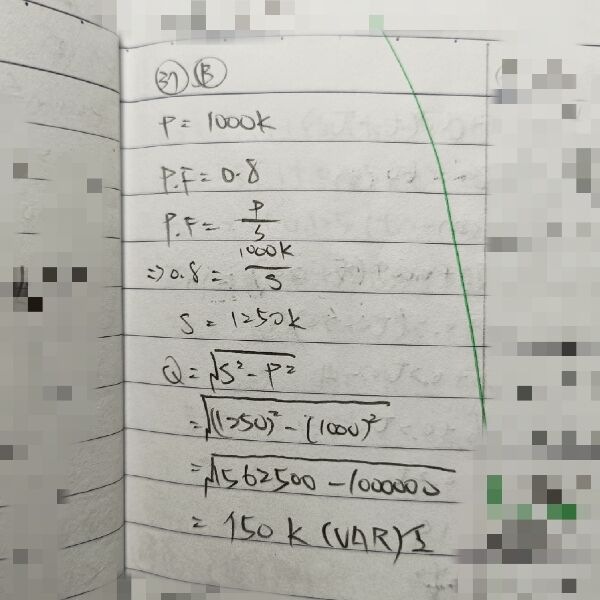 37 B
P = 1000k
P.F = 0.8
P.F = P/S
=> 0.8 = 1000k/S
S = 1250k
Q = √S² - P²
= √(1250)² - (1000)²
= √1562500 - 1000000
= 750 k (VAR)